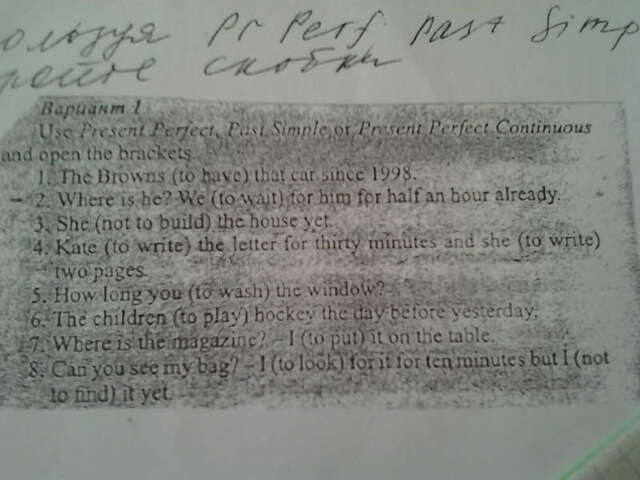 Pr Perf. Past Simp
скобки
Вариант 1
Use Present Perfect, Past Simple or Present Perfect Continuous
and open the brackets.
1. The Browns (to have) that car since 1998.
2. Where is he? We (to wait) for him for half an hour already.
3. She (not to build) the house yet.
4. Kate (to write) the letter for thirty minutes and she (to write)
two pages.
5. How long you (to wash) the window?
6. The children (to play) hockey the day before yesterday.
7. Where is the magazine? – I (to put) it on the table.
8. Can you see my bag? – I (to look) for it for ten minutes but I (not
to find) it yet.